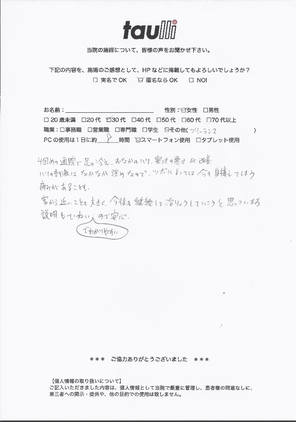 taulli
当院の施術について、皆様の声をお聞かせ下さい。
下記の内容を、施術のご感想として、HPなどに掲載してもよろしいでしょうか？
□実名でOK ☑匿名ならOK □NO!
お名前： 性別：☑女性 □男性
□20歳未満 □20代 ☑30代 □40代 □50代 □60代 □70代以上
職業：□事務職 □営業職 □専門職 □学生 ☑その他(フリーランス
PCの使用は1日に約 8 時間 ☑スマートフォン使用 □タブレット使用
4回めの通院で足の冷え、おなかのハリ、寝つき悪さが改善
ハリの刺激はなかなか強めなので、ツボによっては今も我慢してしまう
痛みがあることも。
家から近いことも大きく、今後も継続して治りょうしていこうと思っています
説明もていねい ので安心。
でわかりやすい
＊＊＊ ご協力ありがとうございました ＊＊＊
【個人情報の取り扱いについて】
ご記入いただきました内容は、個人情報として当院で厳重に管理し、患者様の同意なしに、
第三者への開示・提供や、他の目的での使用は致しません。